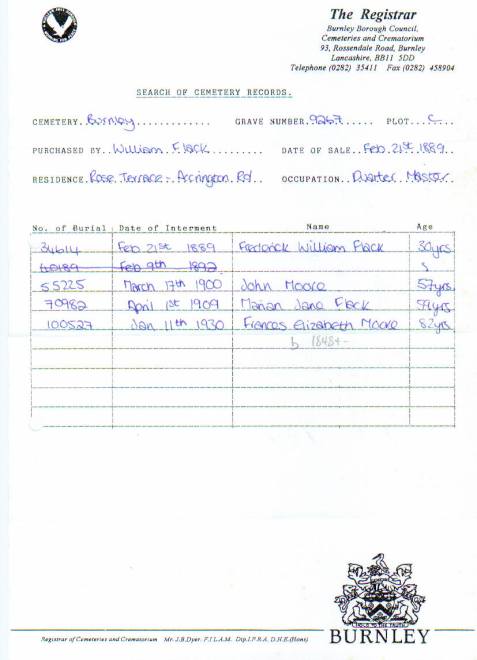 The Registrar
Burnley Borough Council,
Cemeteries and Crematorium
93, Rossendale Road, Burnley
Lancashire, BB11 5DD
Telephone (0282) 35411 Fax (0282) 458904
SEARCH OF CEMETERY RECORDS.
CEMETERY. Burnley............. GRAVE NUMBER. 9267..... PLOT. C....
PURCHASED BY. William Flack......... DATE OF SALE. Feb. 21st 1889..
RESIDENCE. Rose Terrace - Accrington Rd.. OCCUPATION. Quarter Master.
No. of Burial Date of Interment Name Age
34614 Feb 21st 1889 Frederick William Flack 30yrs
Feb 9th 1892
55225 March 17th 1900 John Moore 57yrs
70982 April 1st 1909 Marian Jane Flack
100527 Jan 11th 1930 Frances Elizabeth Moore 82yrs
b 1848
HOLD TO THE TRUTH
BURNLEY
Registrar of Cemeteries and Crematorium Mr.J.B.Dyer. F.I.L.A.M. Dip.I.P.R.A. D.H.E.(Hons)